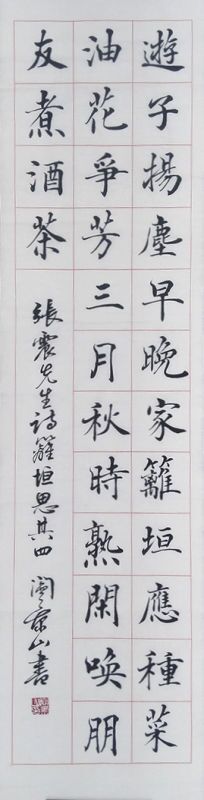 遊子揚塵早晚家籬垣應種菜
油花爭芳三月秋時熟閑喚朋
友煮酒茶
張震先生詩籬垣思其四 閻京山書